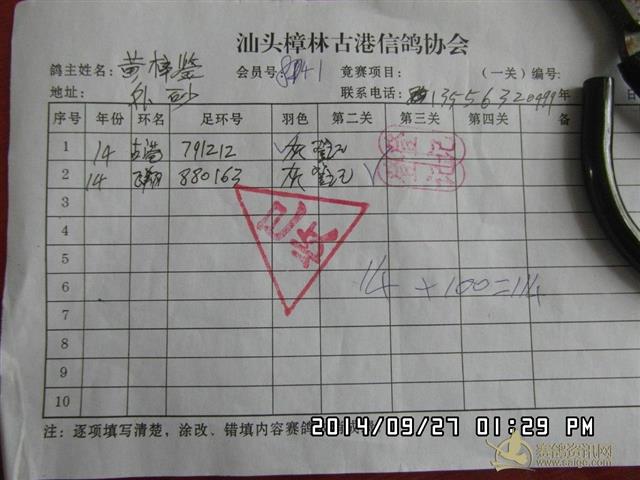 汕头樟林古港信鸽协会
鸽主姓名: 黄梓鉴 会员号 竞赛项目: (一关) 编号:
地址: 外砂 联系电话: 13556320499 年
序号 年份 环名 足环号 羽色 第二关 第三关 第四关 备
1 14 古港 791212 灰
2 14 飞翔 880163 灰
3
4
已收
5
6 14+100=114
7
8
9
10
注: 逐项填写清楚, 涂改、错填内容赛鸽
2014/09/27 01:29 PM
赛鸽资讯网
www.saige.com